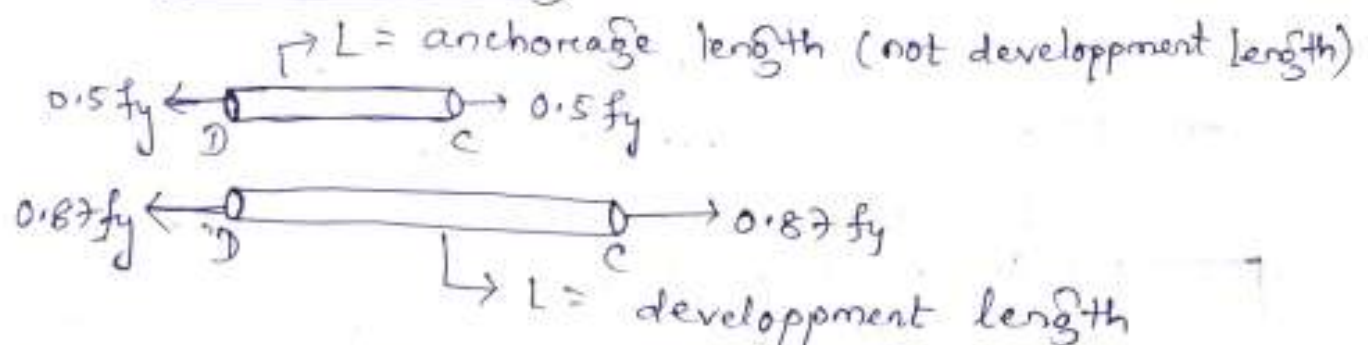 L = anchoreage length (not developpment length)
0.5 fy D C 0.5 fy
0.87 fy D C 0.87 fy
L = developpment length